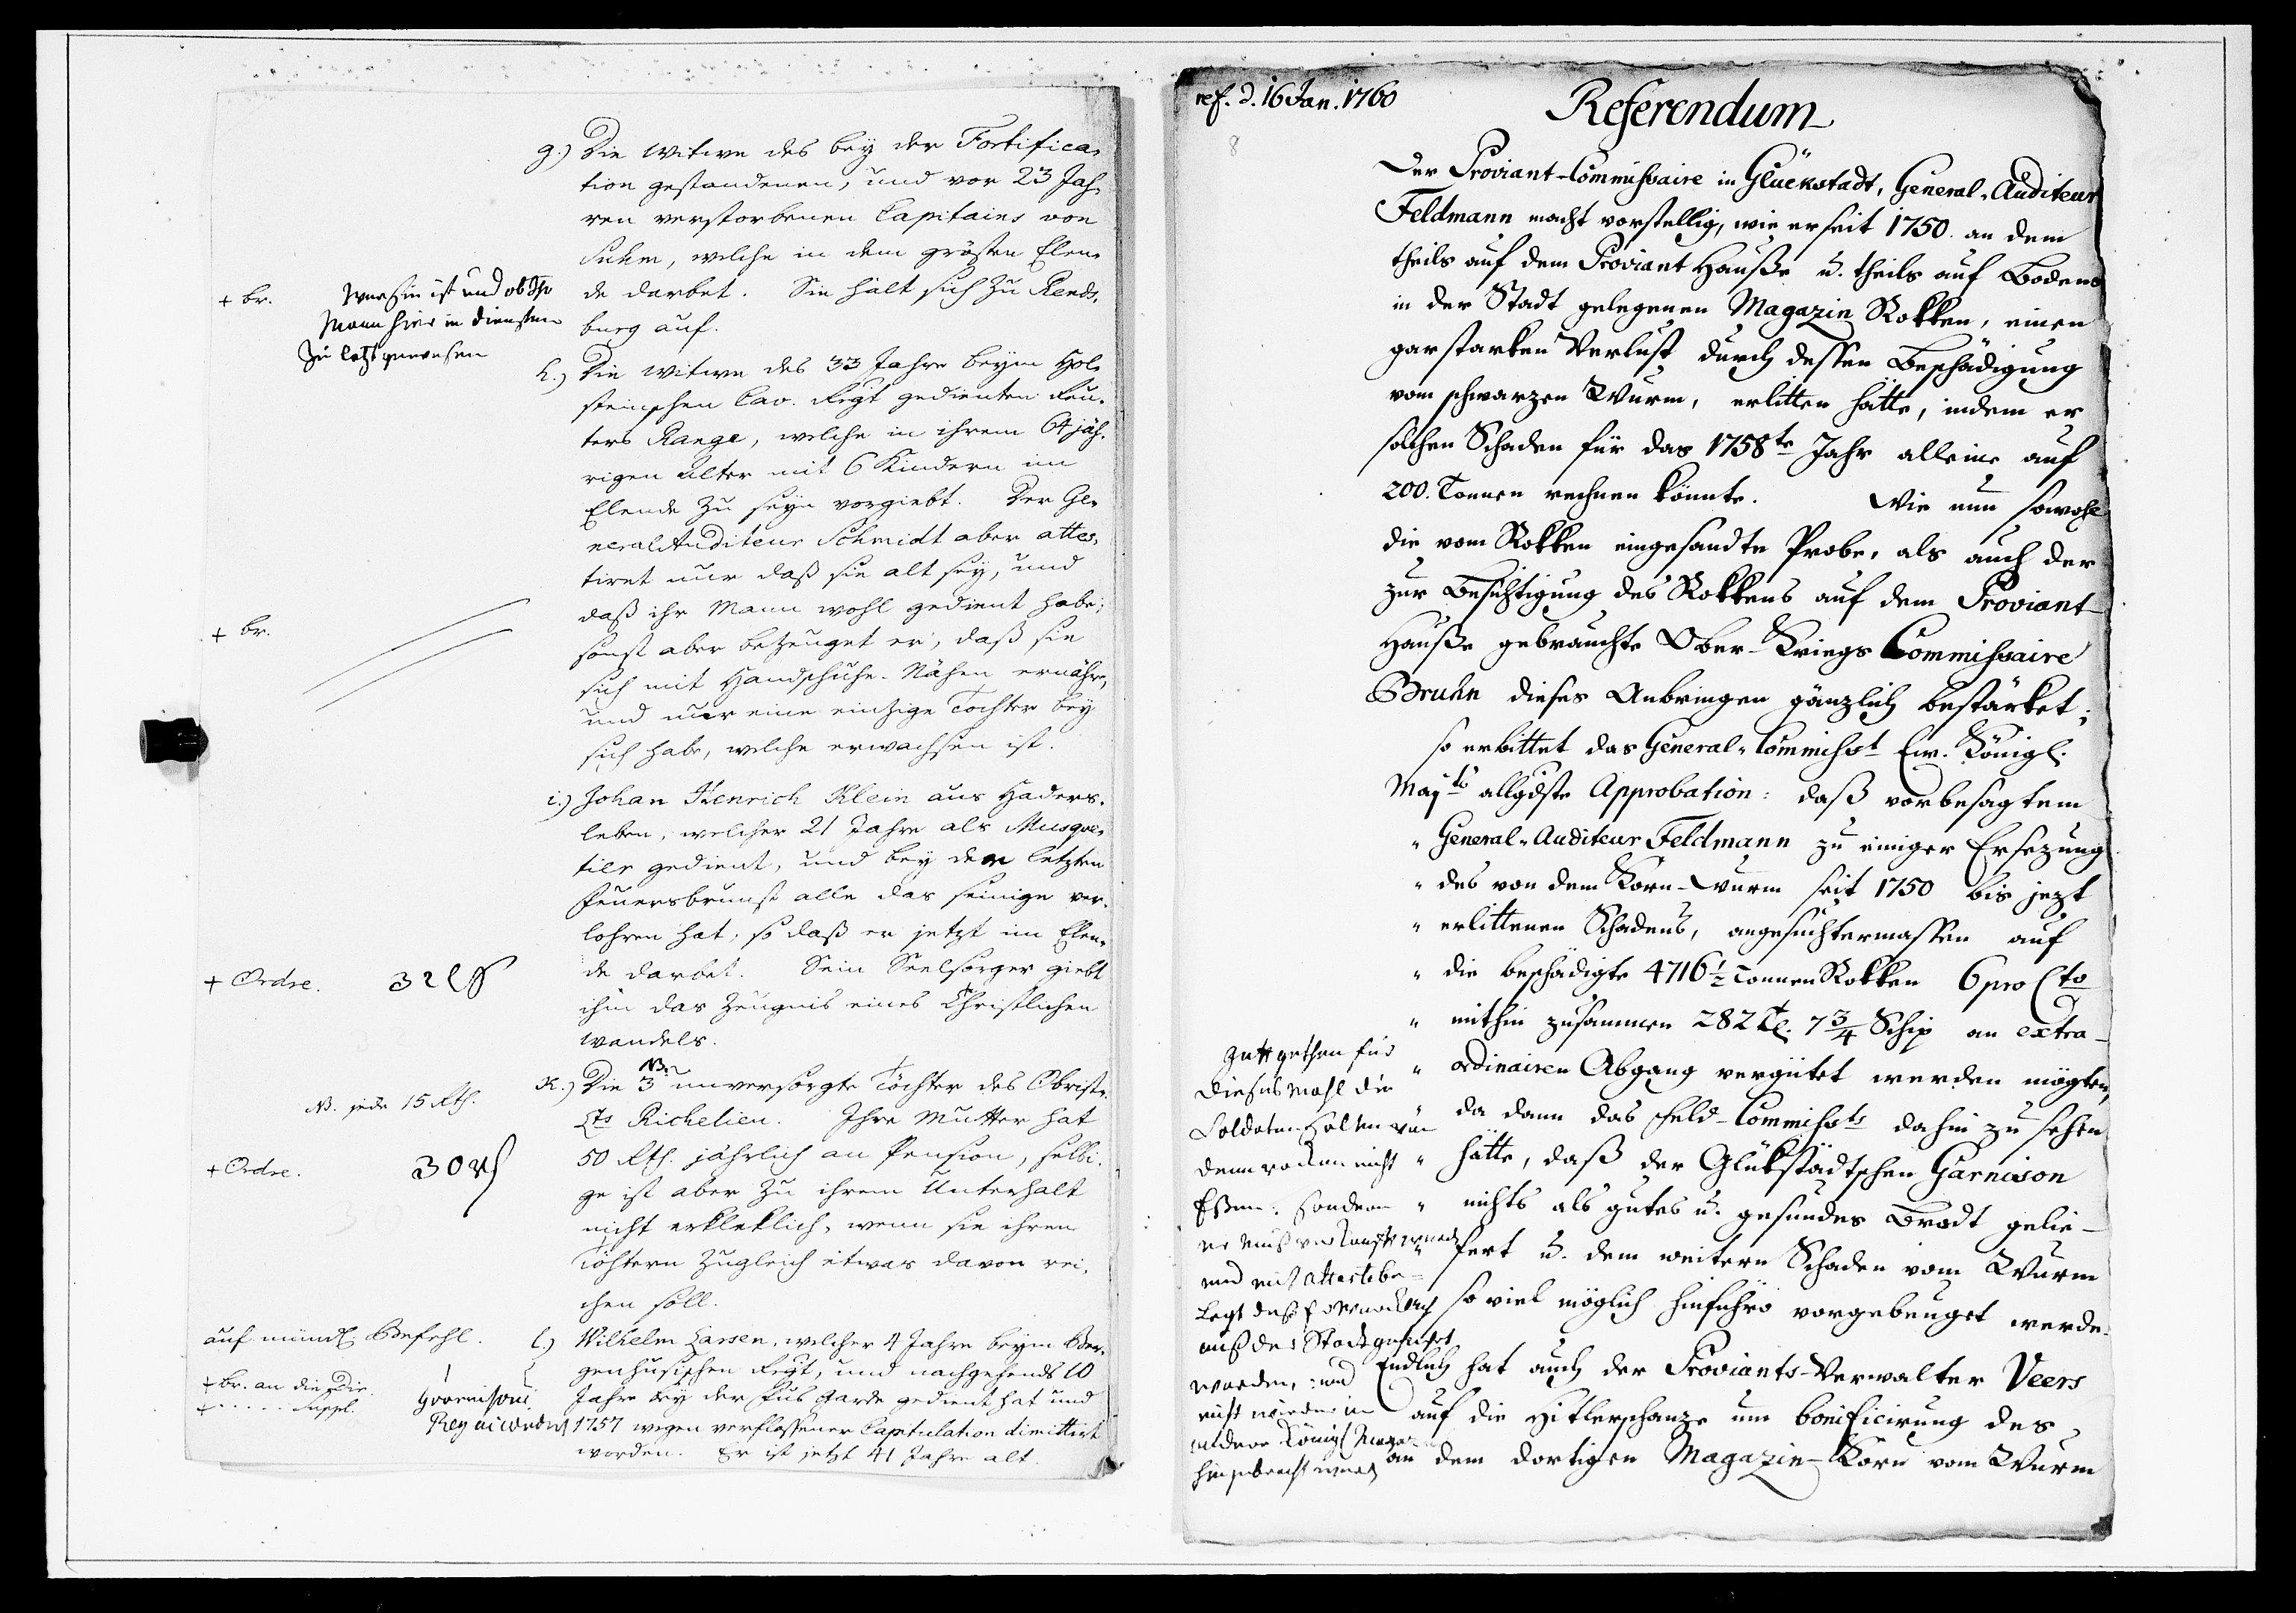 g.) Die Witwe des bey der Fortifica-
tion gestandenen, und vor 23 Jah-
ren verstorbenen Capitains von
Suhm, welche in dem grösten Elen-
de darbet. Sie hält sich zu Rends-
burg auf.
+ br.
Wer sie ist und ob Ihr
Mann hier in diensten
zu letzt gewesen
h.) Die Witwe des 33 Jahre beym Hol-
steinschen Cav. Regt gedienten Reu-
ters Range, welche in ihrem 64 jäh-
rigen Alter mit 6 Kindern im
Elende zu seyn vorgiebt. Der Ge-
neral Auditeur Schmidt aber attes-
tiret nur daß sie alt sey, und
daß ihr Mann wohl gedient habe;
sonst aber bezeuget er, daß sie
sich mit Handschuhe-Nähen ernähre,
und nur eine einzige Tochter bey
sich habe, welche erwachsen ist.
+ br.
i.) Johan Henrich Klein aus Haders-
leben, welcher 21 Jahre als Musqve-
tier gedient, und bey der letzten
Feuersbrunst alle das seinige ver-
lohren hat, so daß er jetzt im Elen-
de darbet. Sein Seelsorger giebt
ihm das Zeugnis eines Christlichen
Wandels.
+ Ordre.
K.) Die 3 NB. unversorgte Töchter des Obrist-
Lts Richelieu. Ihre Mutter hat
50 Rth. jährlich an Pension, selbi-
ge ist aber zu ihrem Unterhalt
nicht erkleklich, wenn sie ihren
Töchtern zugleich etwas davon rei-
chen soll.
NB. jede 15 Rth.
+ Ordre. 30 Rth
l.) Wilhelm Larsen, welcher 4 Jahre beym Ber-
genhusischen Regt, und nachgehends 10
Jahre bey der Fus Garde gedient hat und
1757 wegen verflossener Capitulation dimittirt
worden. Er ist jetzt 41 Jahre alt.
auf mündl. Befehl.
+ br. an die Dir.
+ . . . . . Suppl.
ref. d. 16 Jan. 1760
8
Referendum
Der Proviant-Commissaire in Glückstadt, General-Auditeur
Feldmann macht vorstellig, wie er seit 1750. an dem
theils auf dem Proviant Hauße u. theils auf Bodens
in der Stadt gelegenen Magazin Rokken, einen
gar starken Verlust durch dessen Beschädigung
vom schwarzen Wurm, erlitten hätte, indem er
solchen Schaden für das 1758te Jahr alleine auf
200. Tonnen rechnen könnte. Wie nun sowohl
die vom Rokken eingesandte Probe, als auch der
zur Besichtigung des Rokkens auf dem Proviant-
Hauße gebrauchte Ober-Kriegs Commissaire
Bruhn dieses Anbringen gänzlich bestärket;
so erbittet das General-Commisst Ew. Königl.
Majts allgdste Approbation: daß vorbesagtem
" General-Auditeur Feldmann zu einiger Ersezung
" des von dem Korn-Wurm seit 1750 bis jezt
" erlittenen Schadens, angesuchtermassen auf
" die beschädigte 4716½ Tonnen Rokken 6 pro Cto
" mithin zusammen 282 Tl. 7¾ Schip an extra-
" ordinairen Abgang vergütet werden mögten,
" da dann das Feld-Commissts dahin zu sehen
" hätte, daß der Glükstädtschen Garnison
" nichts als gutes u. gesundes Brodt gelie-
" fert u. dem weitern Schaden vom Wurm
so viel möglich hinführo vorgebeuget werde.
Endlich hat auch der Proviants-Verwalter Veers
auf die Hitlerschanze um bonificirung des,
an dem dortigen Magazin-Korn vom Wurm
dieses mahl die
Soldaten sollen
nicht
Eßen: sondern
und mit
auß der Stadt geführt
worden, und
nicht wieder in
andere Königl